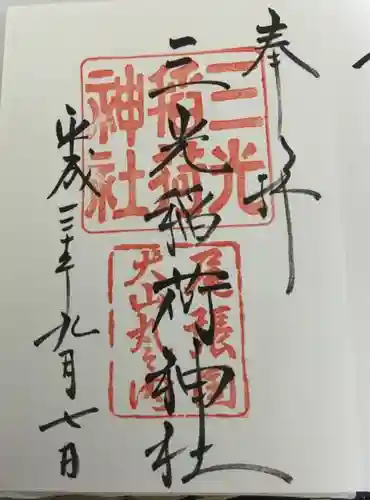 奉拝
三光稲荷神社
平成三十年九月七日
三光
稲荷
神社
尾張国